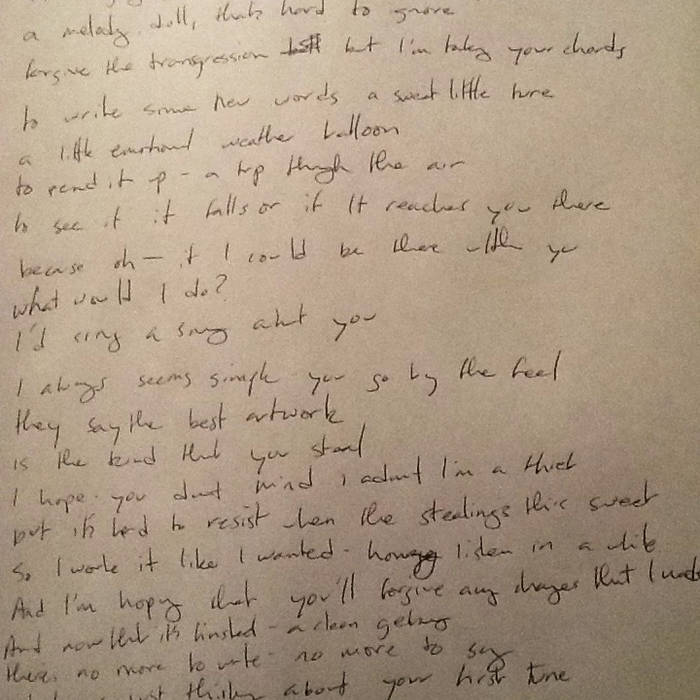 a melody doll, that's hard to ignore
forgive the transgression but I'm taking your chords
to write some new words a sweet little tune
a little emotional weather balloon
to send it up - a trip through the air
to see if it falls or if it reaches you there
because oh - if I could be there with you
what would I do?
I'd sing a song about you
I always seems simple you go by the feel
they say the best artwork
is the kind that you steal
I hope you don't mind I admit I'm a thief
but it's hard to resist when the stealings this sweet
So I wrote it like I wanted - listen in a while
And I'm hoping that you'll forgive any changes that I made
And now that it's finished - a clean getaway
there's no more to write - no more to say
just thinking about your first tune